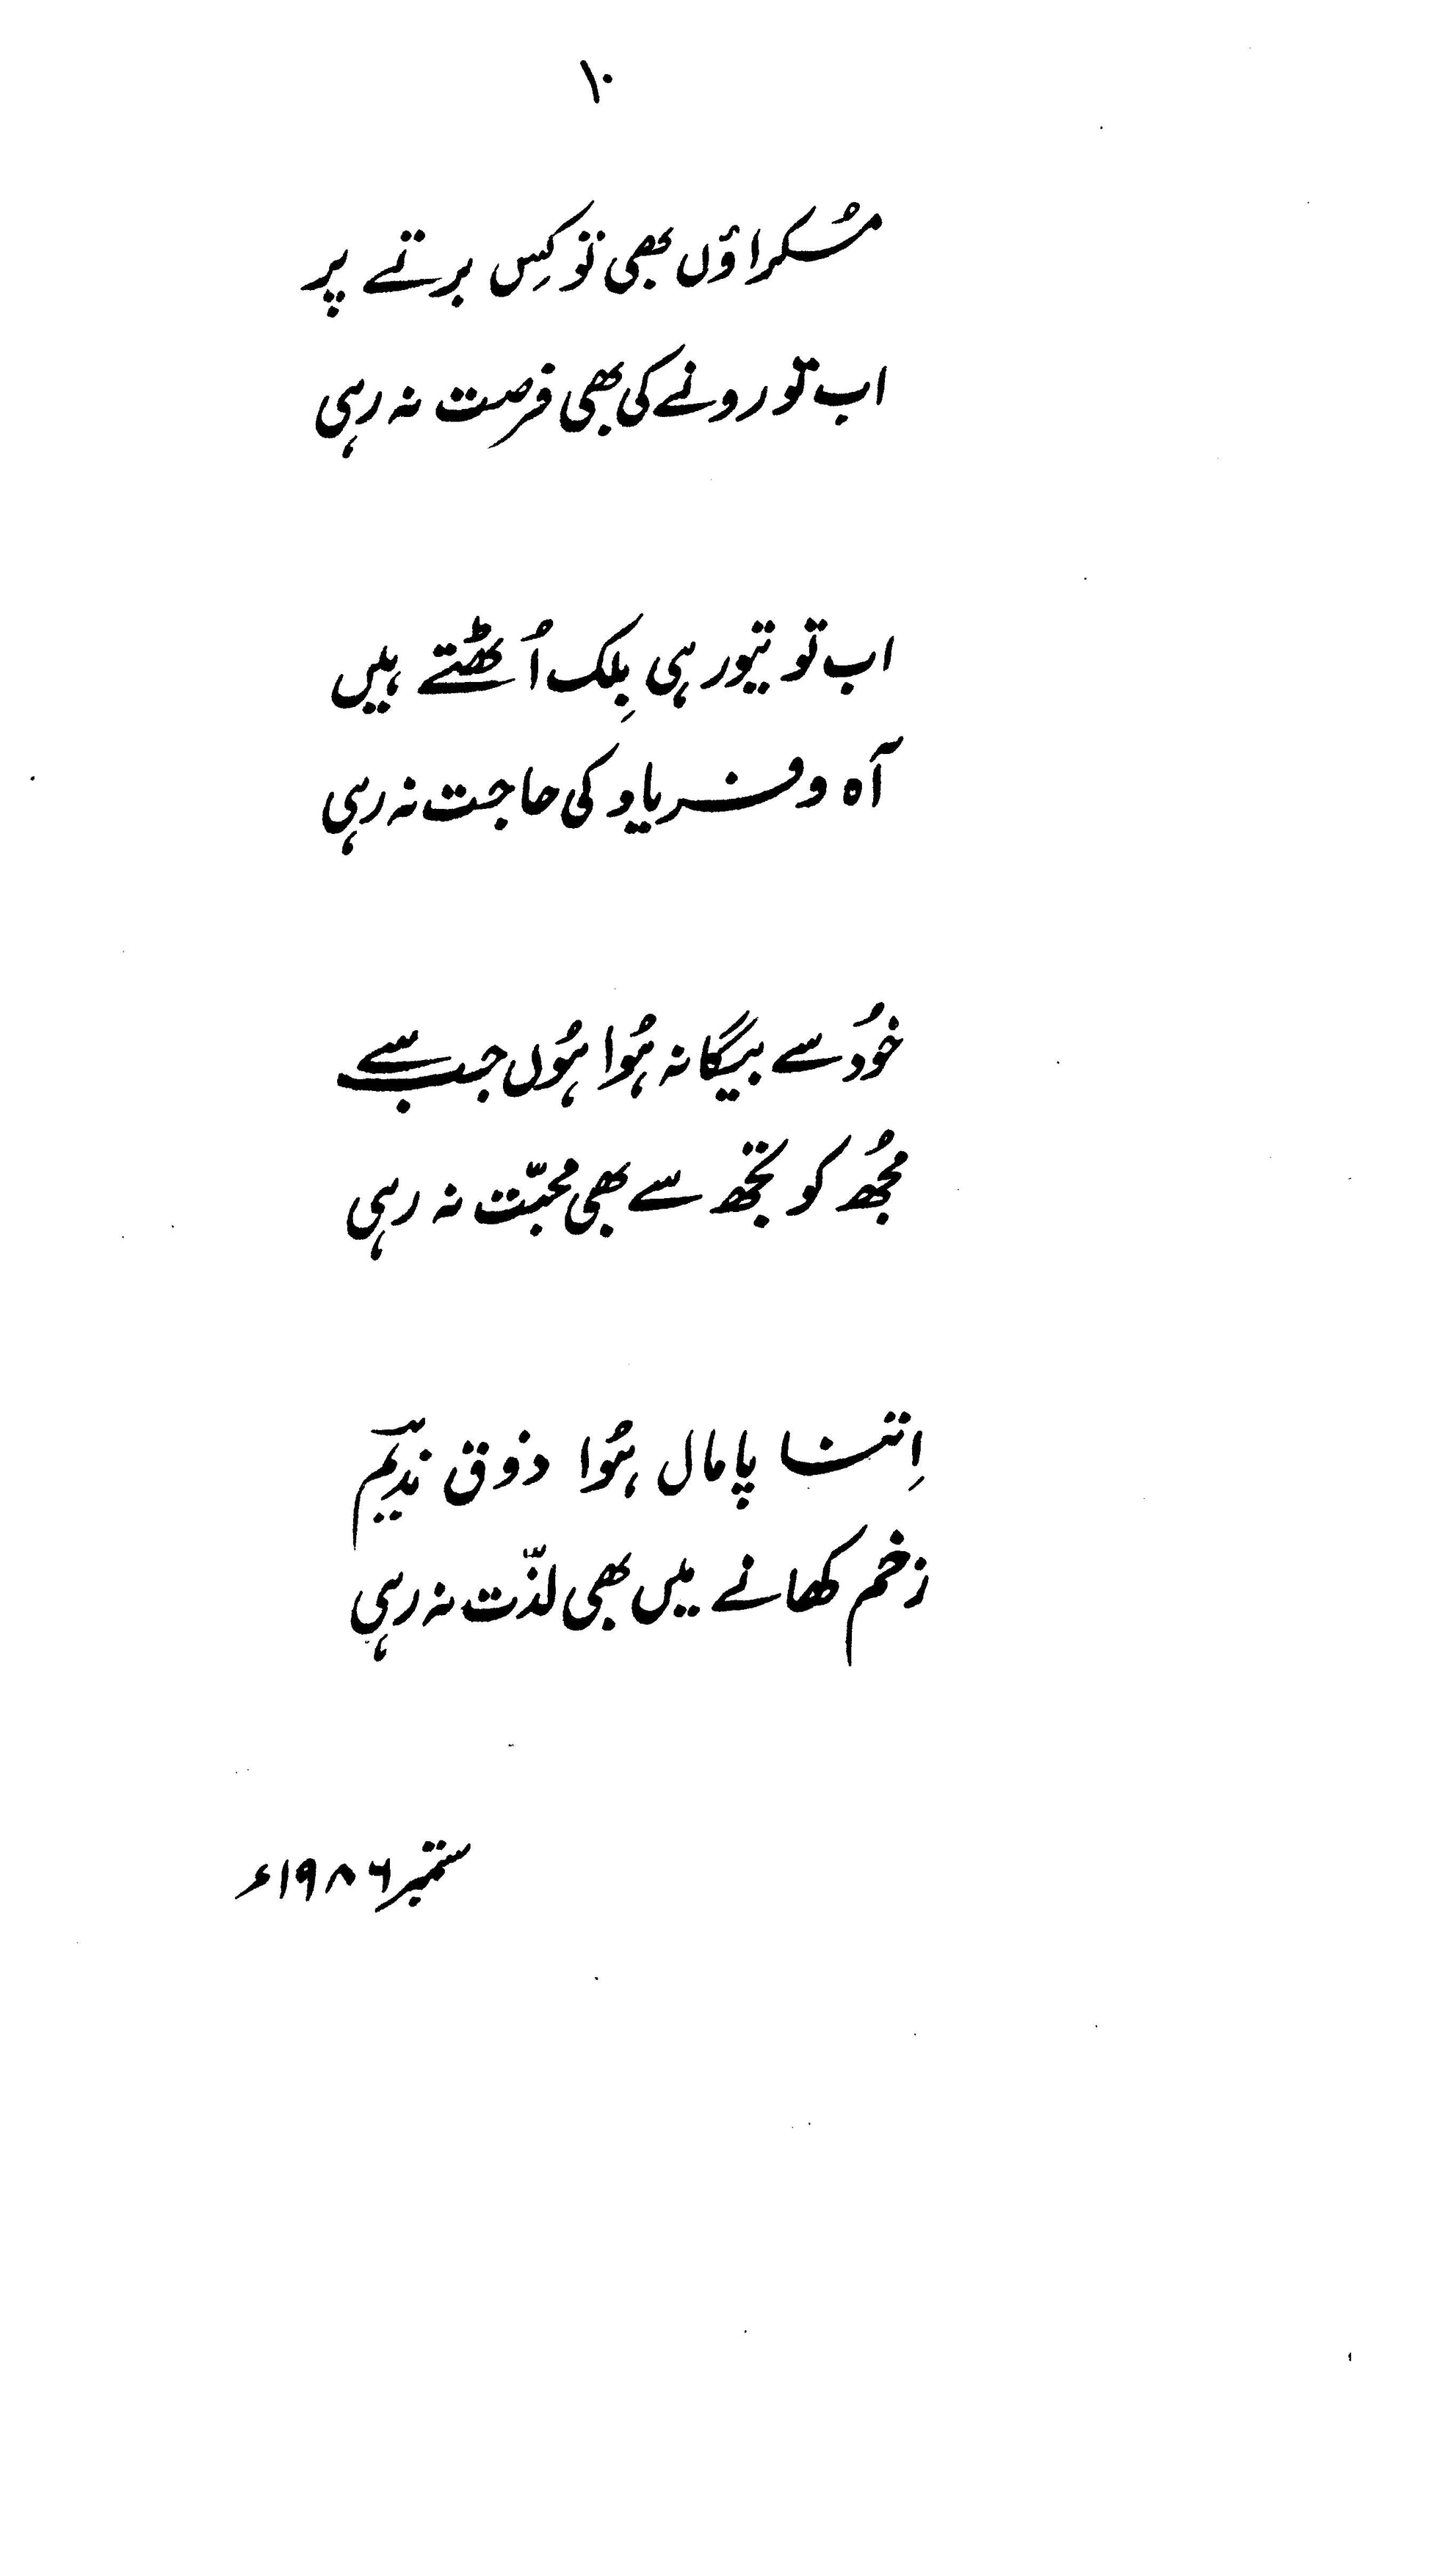 ۱۰
مُسکراؤں بھی تو کِس برتے پر
اب تو رونے کی بھی فرصت نہ رہی
اب تو تیور ہی بِلک اُٹھتے ہیں
آہ و فریاد کی حاجت نہ رہی
خُود سے بیگانہ ہُوا ہُوں جب سے
مجُھ کو تجھ سے بھی محبّت نہ رہی
اِتنا پامال ہُوا ذوق ندیم
زخم کھانے میں بھی لذّت نہ رہی
ستمبر ۱۹۸۶ء